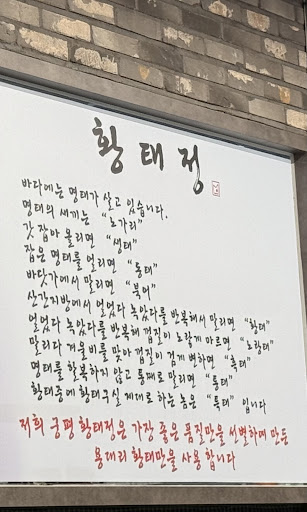 황태정
바다에는 명태가 살고 있습니다.
명태의 새끼는 "노가리"
갓 잡아 올리면 "생태"
잡은 명태를 얼리면 "동태"
바닷가에서 말리면 "북어"
산간지방에서 얼었다 녹았다를 반복해서 말리면 "황태"
얼었다 녹았다를 반복해 껍질이 노랗게 마르면 "노랑태"
말리다 겨울비를 맞아 껍질이 검게 변하면 "흑태"
명태를 할복하지 않고 통째로 말리면 "통태"
황태중에 황태구실 제대로 하는 놈은 "특태" 입니다
저희 궁평 황태정은 가장 좋은 품질만을 선별하여 만든
용대리 황태만을 사용 합니다